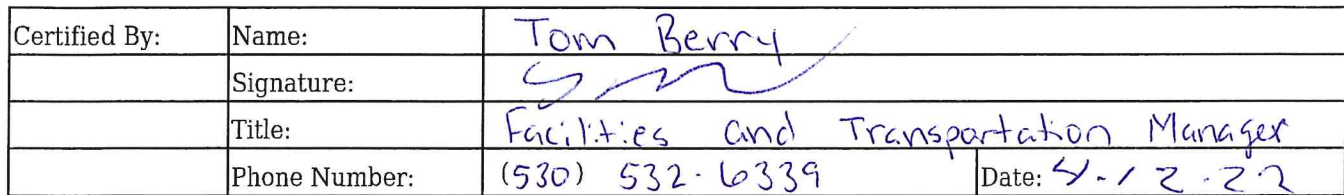 Certified By: Name: Tom Berry
Signature:
Title: Facilities and Transportation Manager
Phone Number: (530) 532-6339 Date: 4-12-22